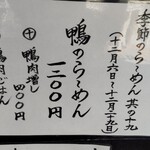 季節のらーめん 其の十九
(十二月六日〜十二月二十九日)
鴨のらーめん
一三〇〇円
㊉ 鴨肉増し
四〇〇円
鴨肉ごはん